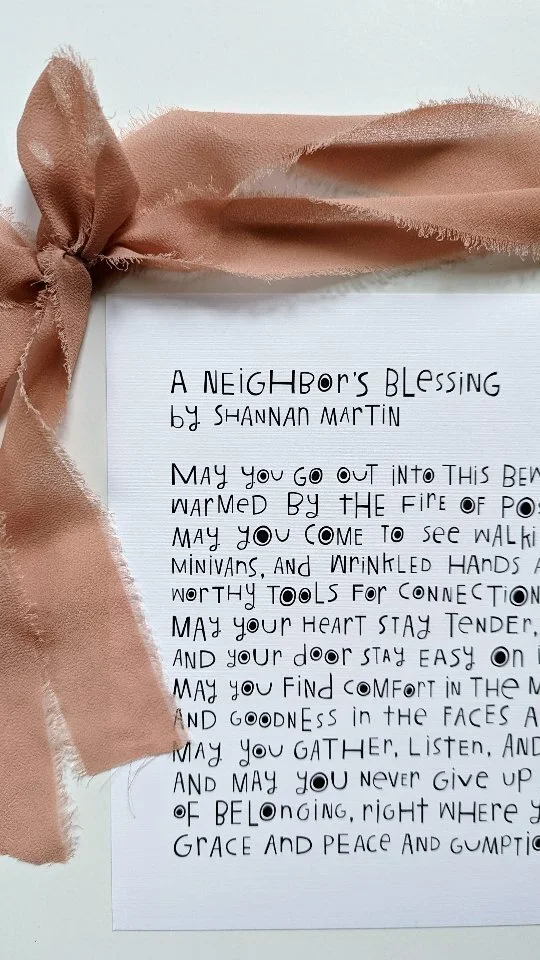 A NEIGHBOR'S BLESSING
by SHANNAN MARTIN
MAY YOU GO OUT INTO THIS
WARMED BY THE FIRE OF
MAY YOU COME TO SEE
MINIVANS, AND WRINKLED HANDS
WORTHY TOOLS FOR CONNECTION
MAY YOUR HEART STAY TENDER,
AND YOUR DOOR STAY EASY ON
MAY YOU FIND COMFORT IN THE
AND GOODNESS IN THE FACES
MAY YOU GATHER, LISTEN, AND
AND MAY YOU NEVER GIVE UP
OF BELONGING, RIGHT WHERE
GRACE AND PEACE AND